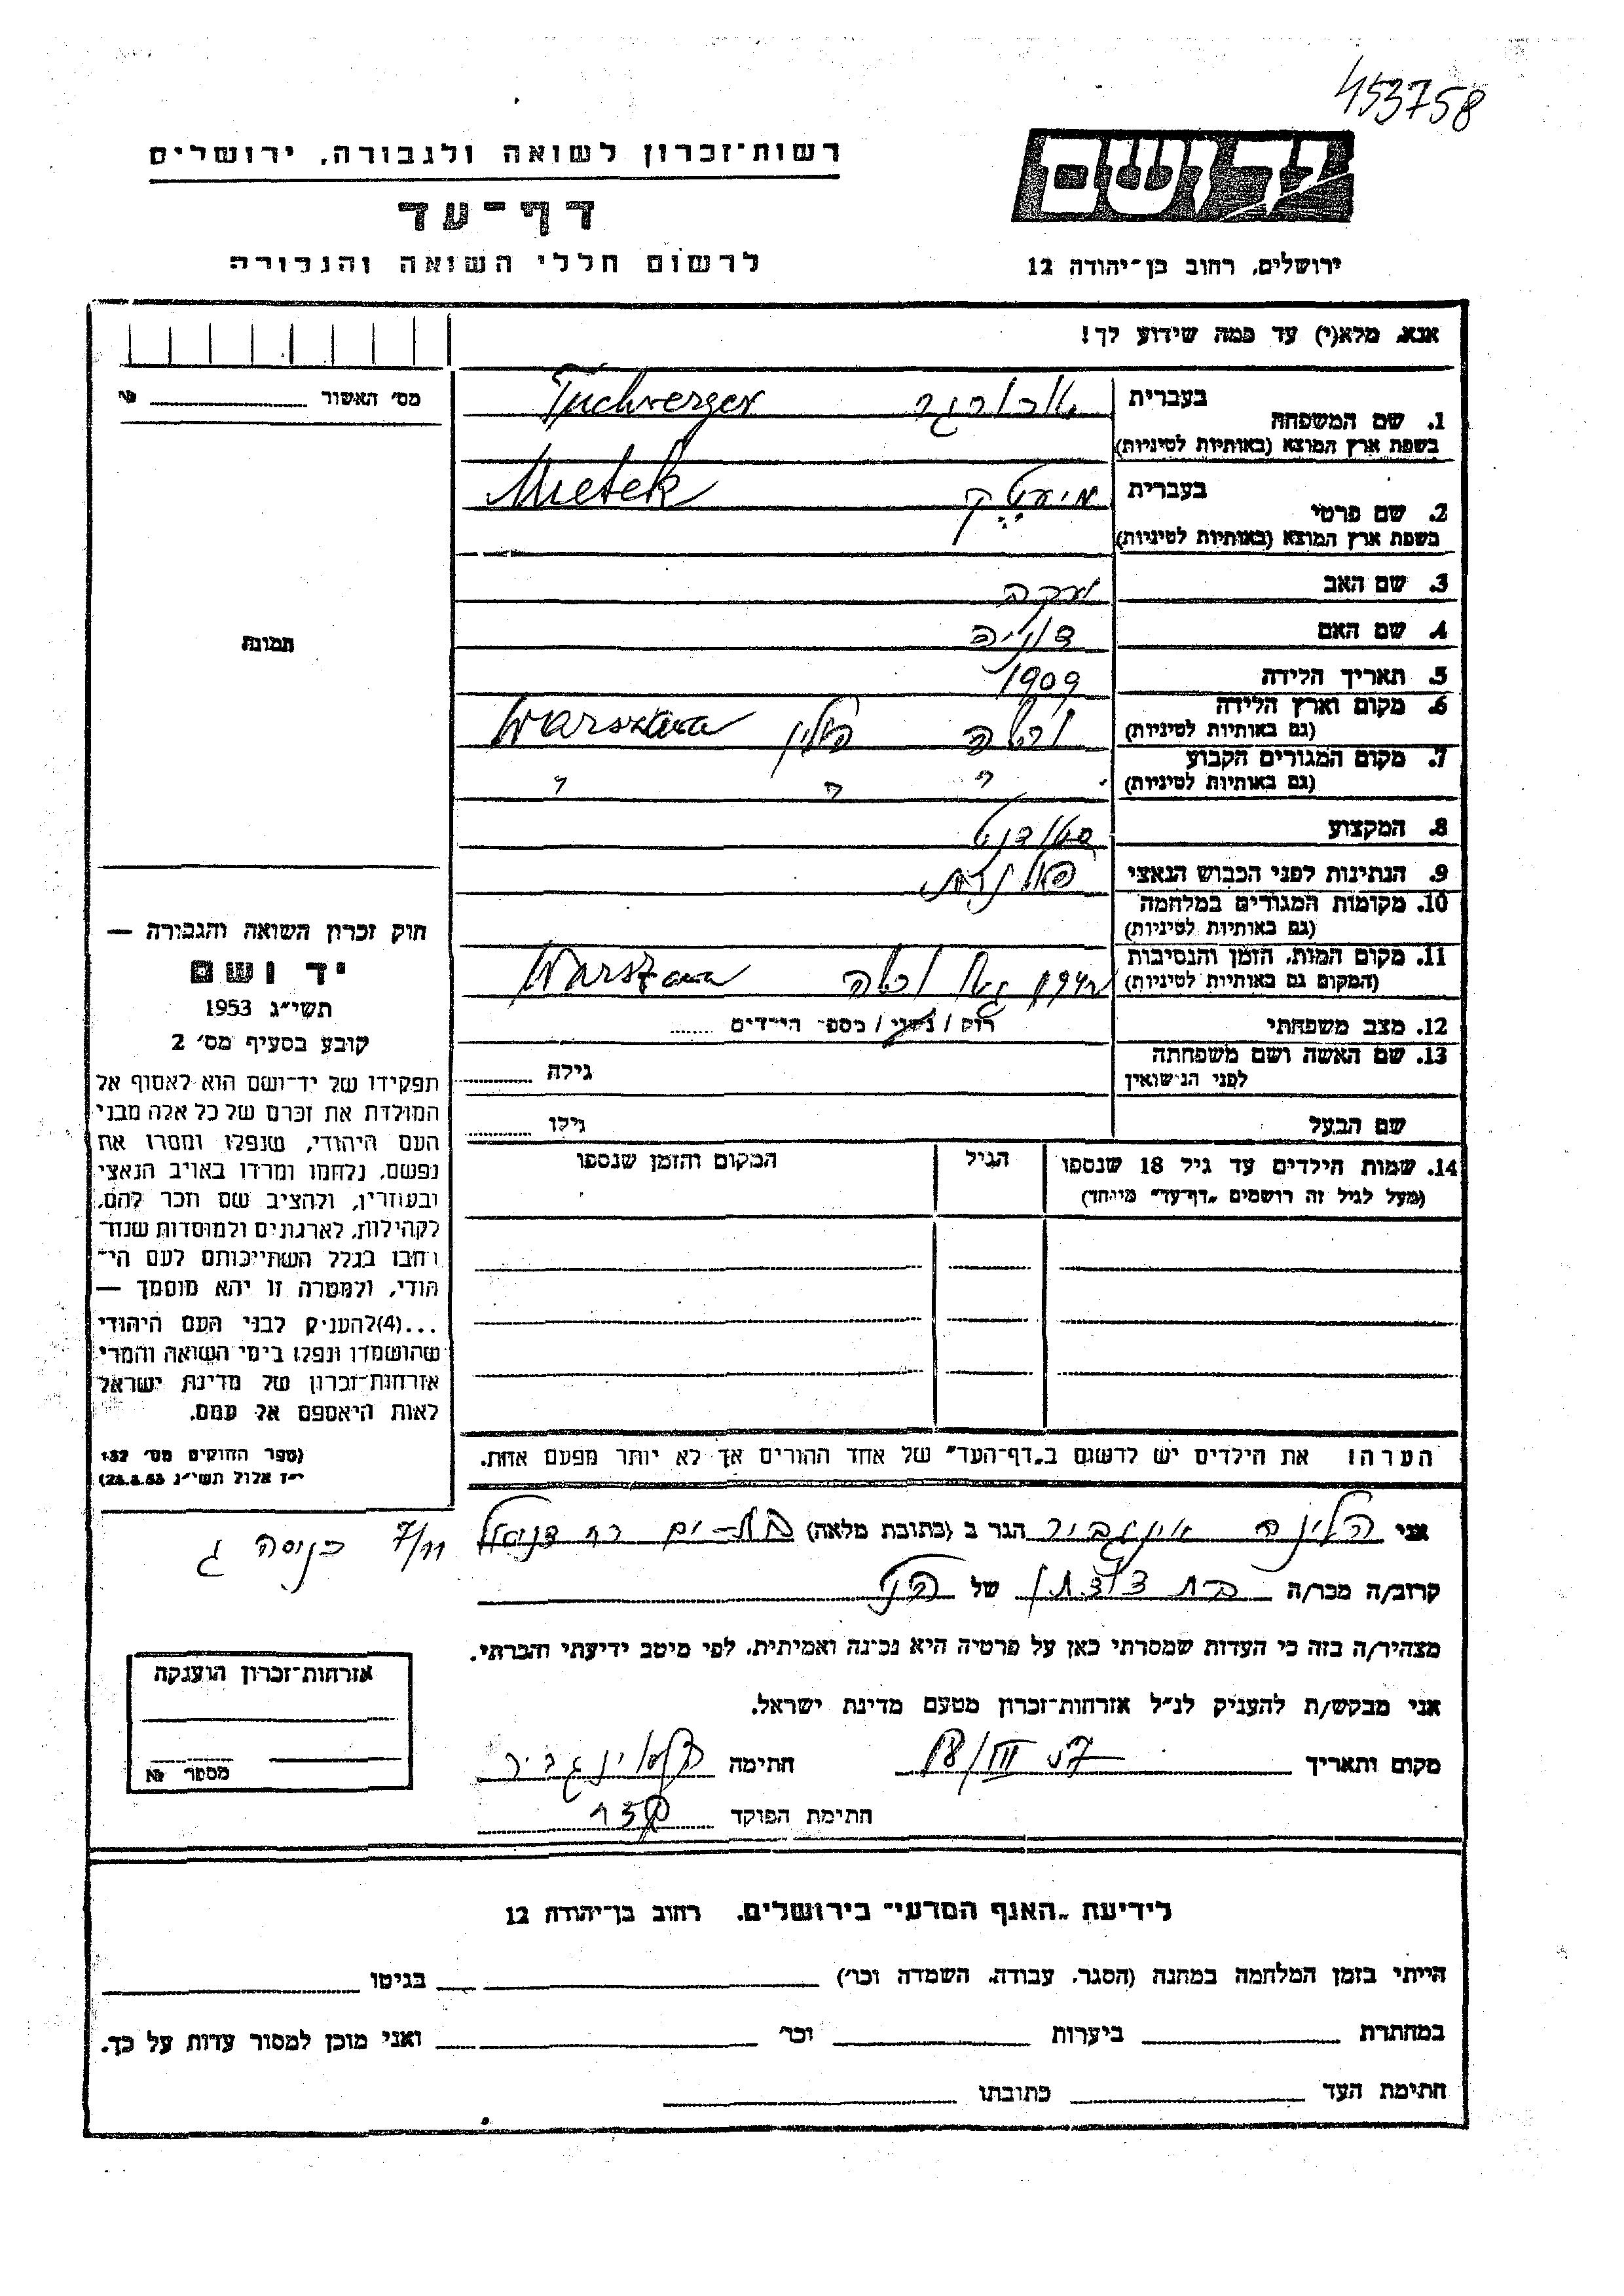 453758
יד ושם
רשות־זכרון לשואה ולגבורה, ירושלים
דף־עד
לרשום חללי השואה והגבורה
ירושלים, רחוב בן־יהודה 12
אנא, מלא(י) עד כמה שידוע לך!
מס׳ האשור №
1. שם המשפחה בעברית
בשפת ארץ המוצא (באותיות לטיניות)
2. שם פרטי בעברית מיעטק Mietek
בשפת ארץ המוצא (באותיות לטיניות)
3. שם האב
4. שם האם
5. תאריך הלידה 1909
6. מקום וארץ הלידה ורשה פולין Warszawa
(גם באותיות לטיניות)
7. מקום המגורים הקבוע
(גם באותיות לטיניות)
8. המקצוע סטודנט
9. הנתינות לפני הכבוש הנאצי פולנית
10. מקומות המגורים במלחמה
(גם באותיות לטיניות)
11. מקום המות, הזמן והנסיבות גטו ורשה Warszawa
(המקום גם באותיות לטיניות)
12. מצב משפחתי רוק / נשוי / מספר הילדים
13. שם האשה ושם משפחתה גילה
לפני הנישואין
שם הבעל גילו
14. שמות הילדים עד גיל 18 שנספו הגיל המקום והזמן שנספו
(מעל לגיל זה רושמים „דף־עד״ מיוחד)
הערה: את הילדים יש לרשום ב„דף־העד״ של אחד ההורים אך לא יותר מפעם אחת.
תמונה
חוק זכרון השואה והגבורה —
יד ושם
תשי״ג 1953
קובע בסעיף מס׳ 2
תפקידו של יד־ושם הוא לאסוף אל
המולדת את זכרם של כל אלה מבני
העם היהודי, שנפלו ומסרו את
נפשם, נלחמו ומרדו באויב הנאצי
ובעוזריו, ולהציב שם וזכר להם,
לקהילות, לארגונים ולמוסדות שנח־
רבו בגלל השתייכותם לעם הי־
הודי, ולמטרה זו יהא מוסמך —
...(4)להעניק לבני העם היהודי
שהושמדו ונפלו בימי השואה והמרי
אזרחות־זכרון של מדינת ישראל
לאות היאספם אל עמם.
(ספר החוקים מס׳ 132
י״ז אלול תשי״ג 28.8.53)
אני הלינה הגר ב (כתובת מלאה) בת-ים רח דניאל
7/11 כניסה ג
קרוב/ה מכר/ה בת דודתו של הנ״ל
מצהיר/ה בזה כי העדות שמסרתי כאן על פרטיה היא נכונה ואמיתית, לפי מיטב ידיעתי והכרתי.
אני מבקש/ת להעניק לנ״ל אזרחות־זכרון מטעם מדינת ישראל.
מקום ותאריך חתימה
חתימת הפוקד
אזרחות־זכרון הוענקה
מספר №
לידיעת „האגף המדעי״ בירושלים, רחוב בן־יהודה 12
הייתי בזמן המלחמה במחנה (הסגר, עבודה, השמדה וכו׳) בגיטו
במחתרת ביערות וכו׳ ואני מוכן למסור עדות על כך.
חתימת העד כתובתו